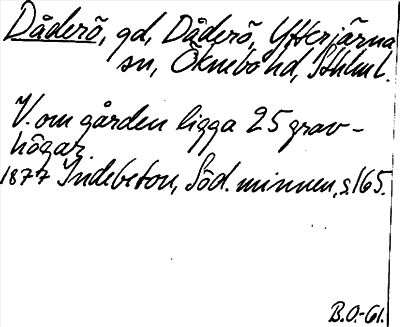 Dåderö, gd, Dåderö, Ytterjärna
sn, Öknebo hd, Sthlm l.
V. om gården ligga 25 grav-
högar.
1877 Indebetou, Söd. minnen, s. 165.
B.O.-61.